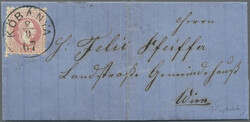 KÖBÁNYA
67
Herrn
Felix Pfeiffer
Landstraße Gemeindehaus
Wien